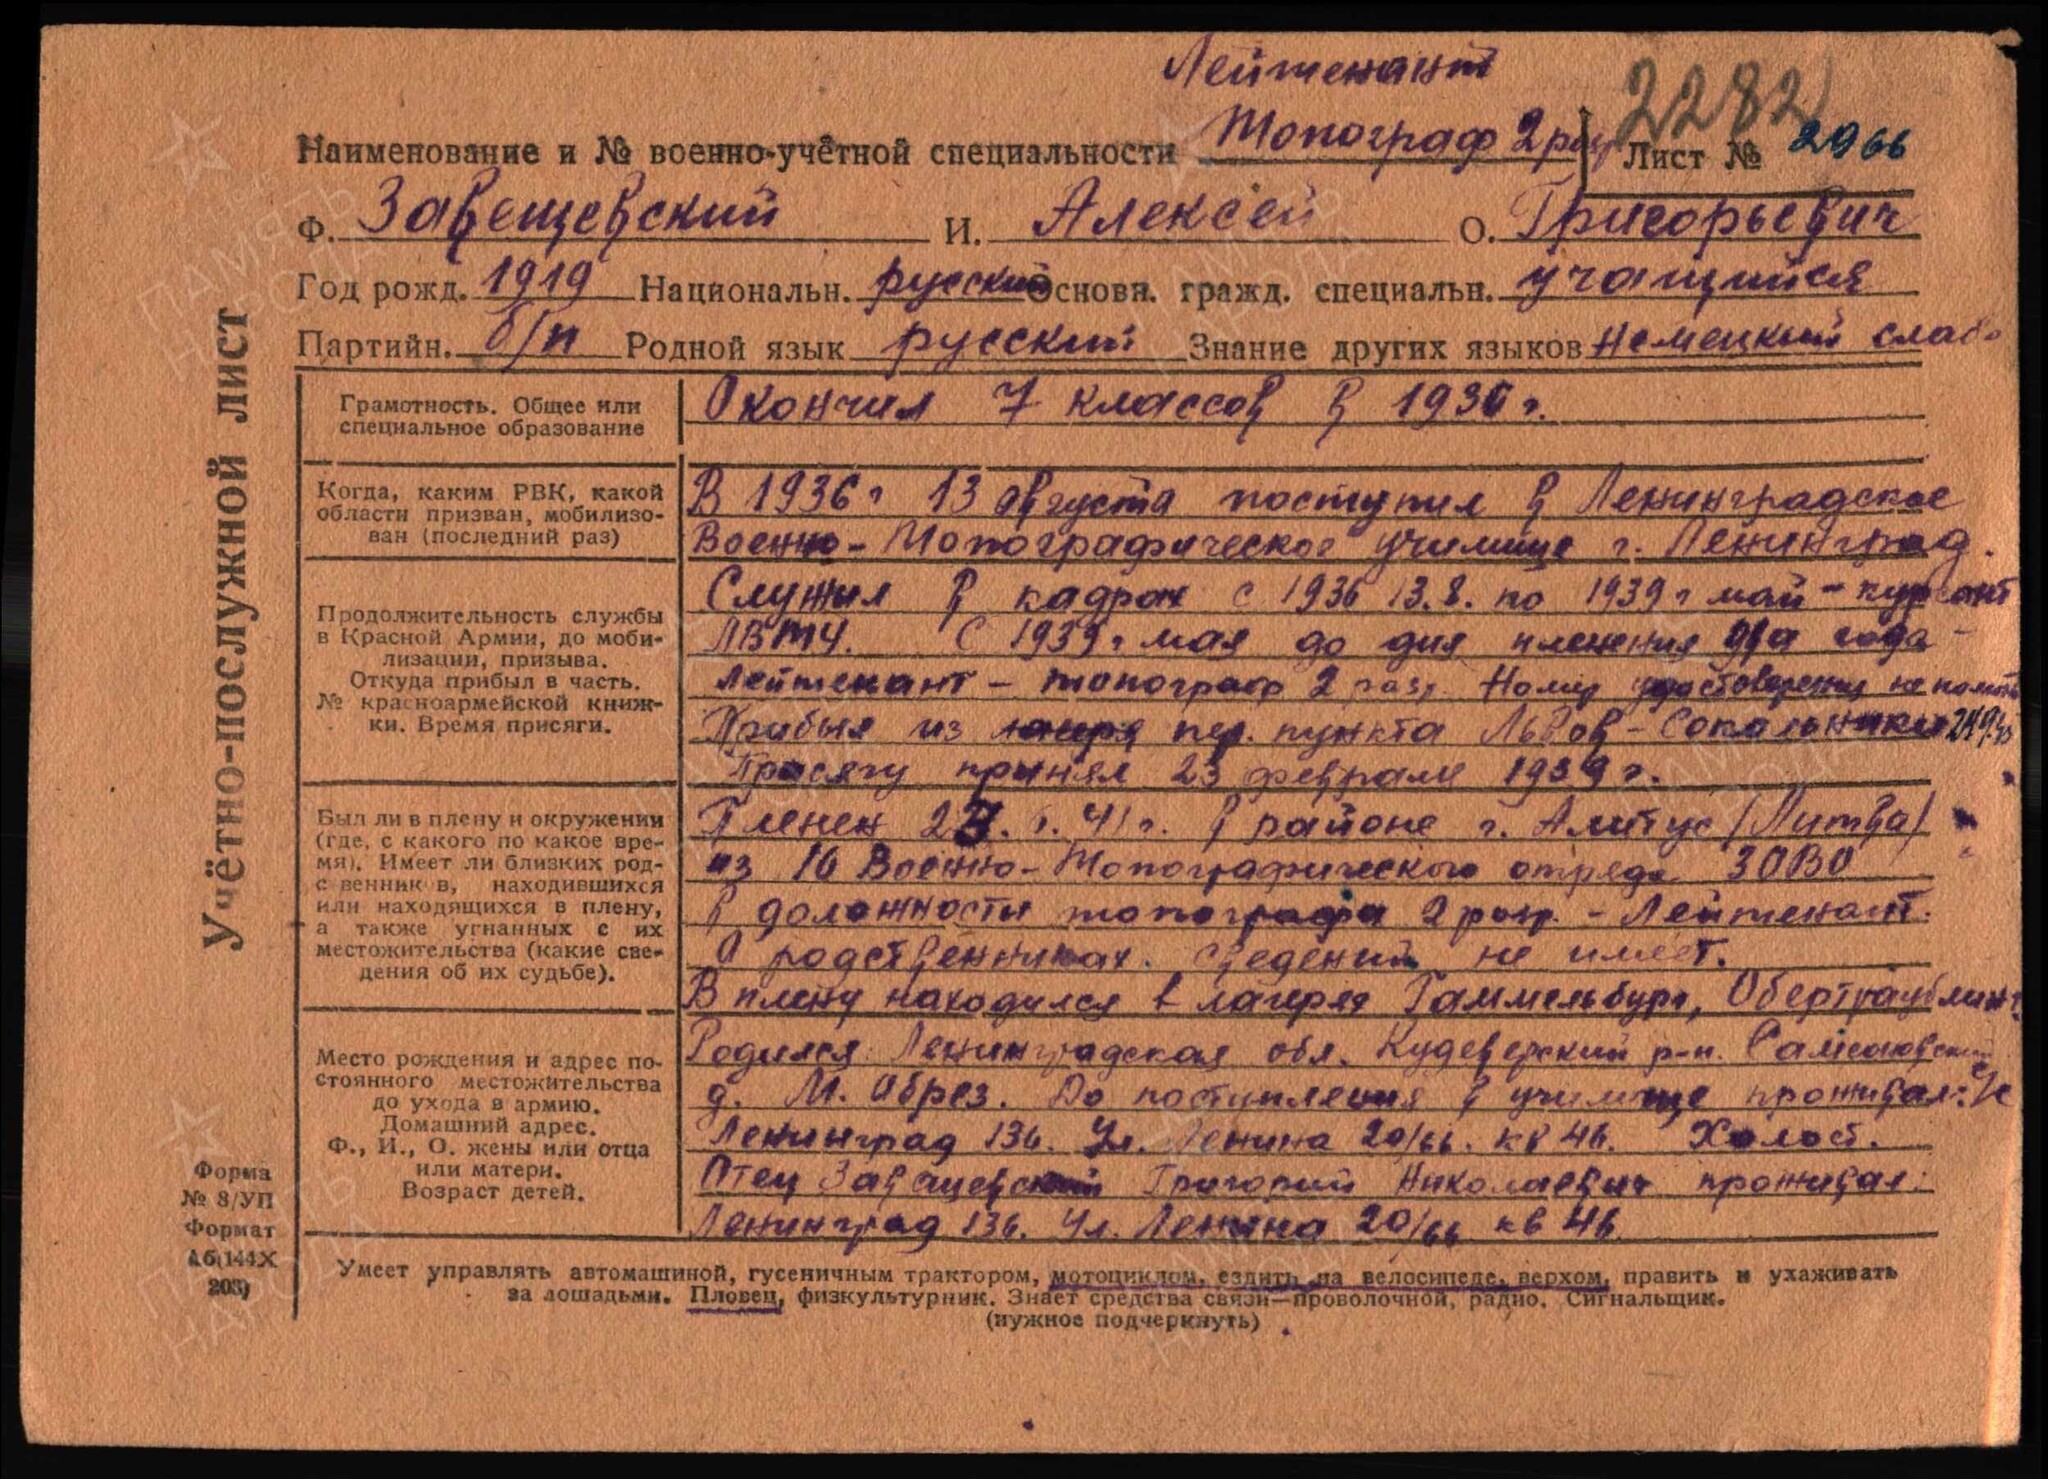 Лейтенант
2282
Наименование и № военно-учётной специальности Топограф 2 раз Лист № 2966
Ф. Завещевский И. Алексей О. Григорьевич
Год рожд. 1919 Национальн. русский Основн. гражд. специальн. учащийся
Партийн. б/п Родной язык русский Знание других языков немецкий слабо
УЧЁТНО-ПОСЛУЖНОЙ ЛИСТ
Грамотность. Общее или
специальное образование
Окончил 7 классов в 1936 г.
Когда, каким РВК, какой
области призван, мобилизо-
ван (последний раз)
В 1936 г 13 августа поступил в Ленинградское
Военно-Топографическое училище г. Ленинград.
Продолжительность службы
в Красной Армии, до моби-
лизации, призыва.
Откуда прибыл в часть.
№ красноармейской книж-
ки. Время присяги.
Служил в кадрах с 1936 13.8. по 1939 г май - курсант
ЛВТУ. С 1939 г мая до дня пленения два года -
лейтенант - топограф 2 разр. Номер удостоверения не помнит
Прибыл из лагеря пер. пункта Львов - Сокольники
Присягу принял 23 февраля 1939 г.
Был ли в плену и окружении
(где, с какого по какое вре-
мя). Имеет ли близких род-
с венник в, находившихся
или находящихся в плену,
а также угнанных с их
местожительства (какие све-
дения об их судьбе).
Пленен 41 г. в районе г. Алитус (Литва)
из 16 Военно-Топографического отряда ЗОВО
в должности топографа 2 разр. - Лейтенант.
О родственниках сведений не имеет.
В плену находился в лагерях Гаммельбург, Обертраублинг.
Место рождения и адрес по-
стоянного местожительства
до ухода в армию.
Домашний адрес.
Ф., И., О. жены или отца
или матери.
Возраст детей.
Родился: Ленинградская обл. Кудеверский р-н.
д. М. Обрез. До поступления в училище проживал:
Ленинград 136. Ул. Ленина 20/66. кв 46. Холост.
Отец Завещевский Григорий Николаевич проживал:
Ленинград 136. Ул. Ленина 20/66 кв 46
Форма
№ 8/УП
Формат
А6(144Х
203)
Умеет управлять автомашиной, гусеничным трактором, мотоциклом, ездить на велосипеде, верхом, править и ухаживать
за лошадьми. Пловец, физкультурник. Знает средства связи—проволочной, радио. Сигнальщик.
(нужное подчеркнуть)